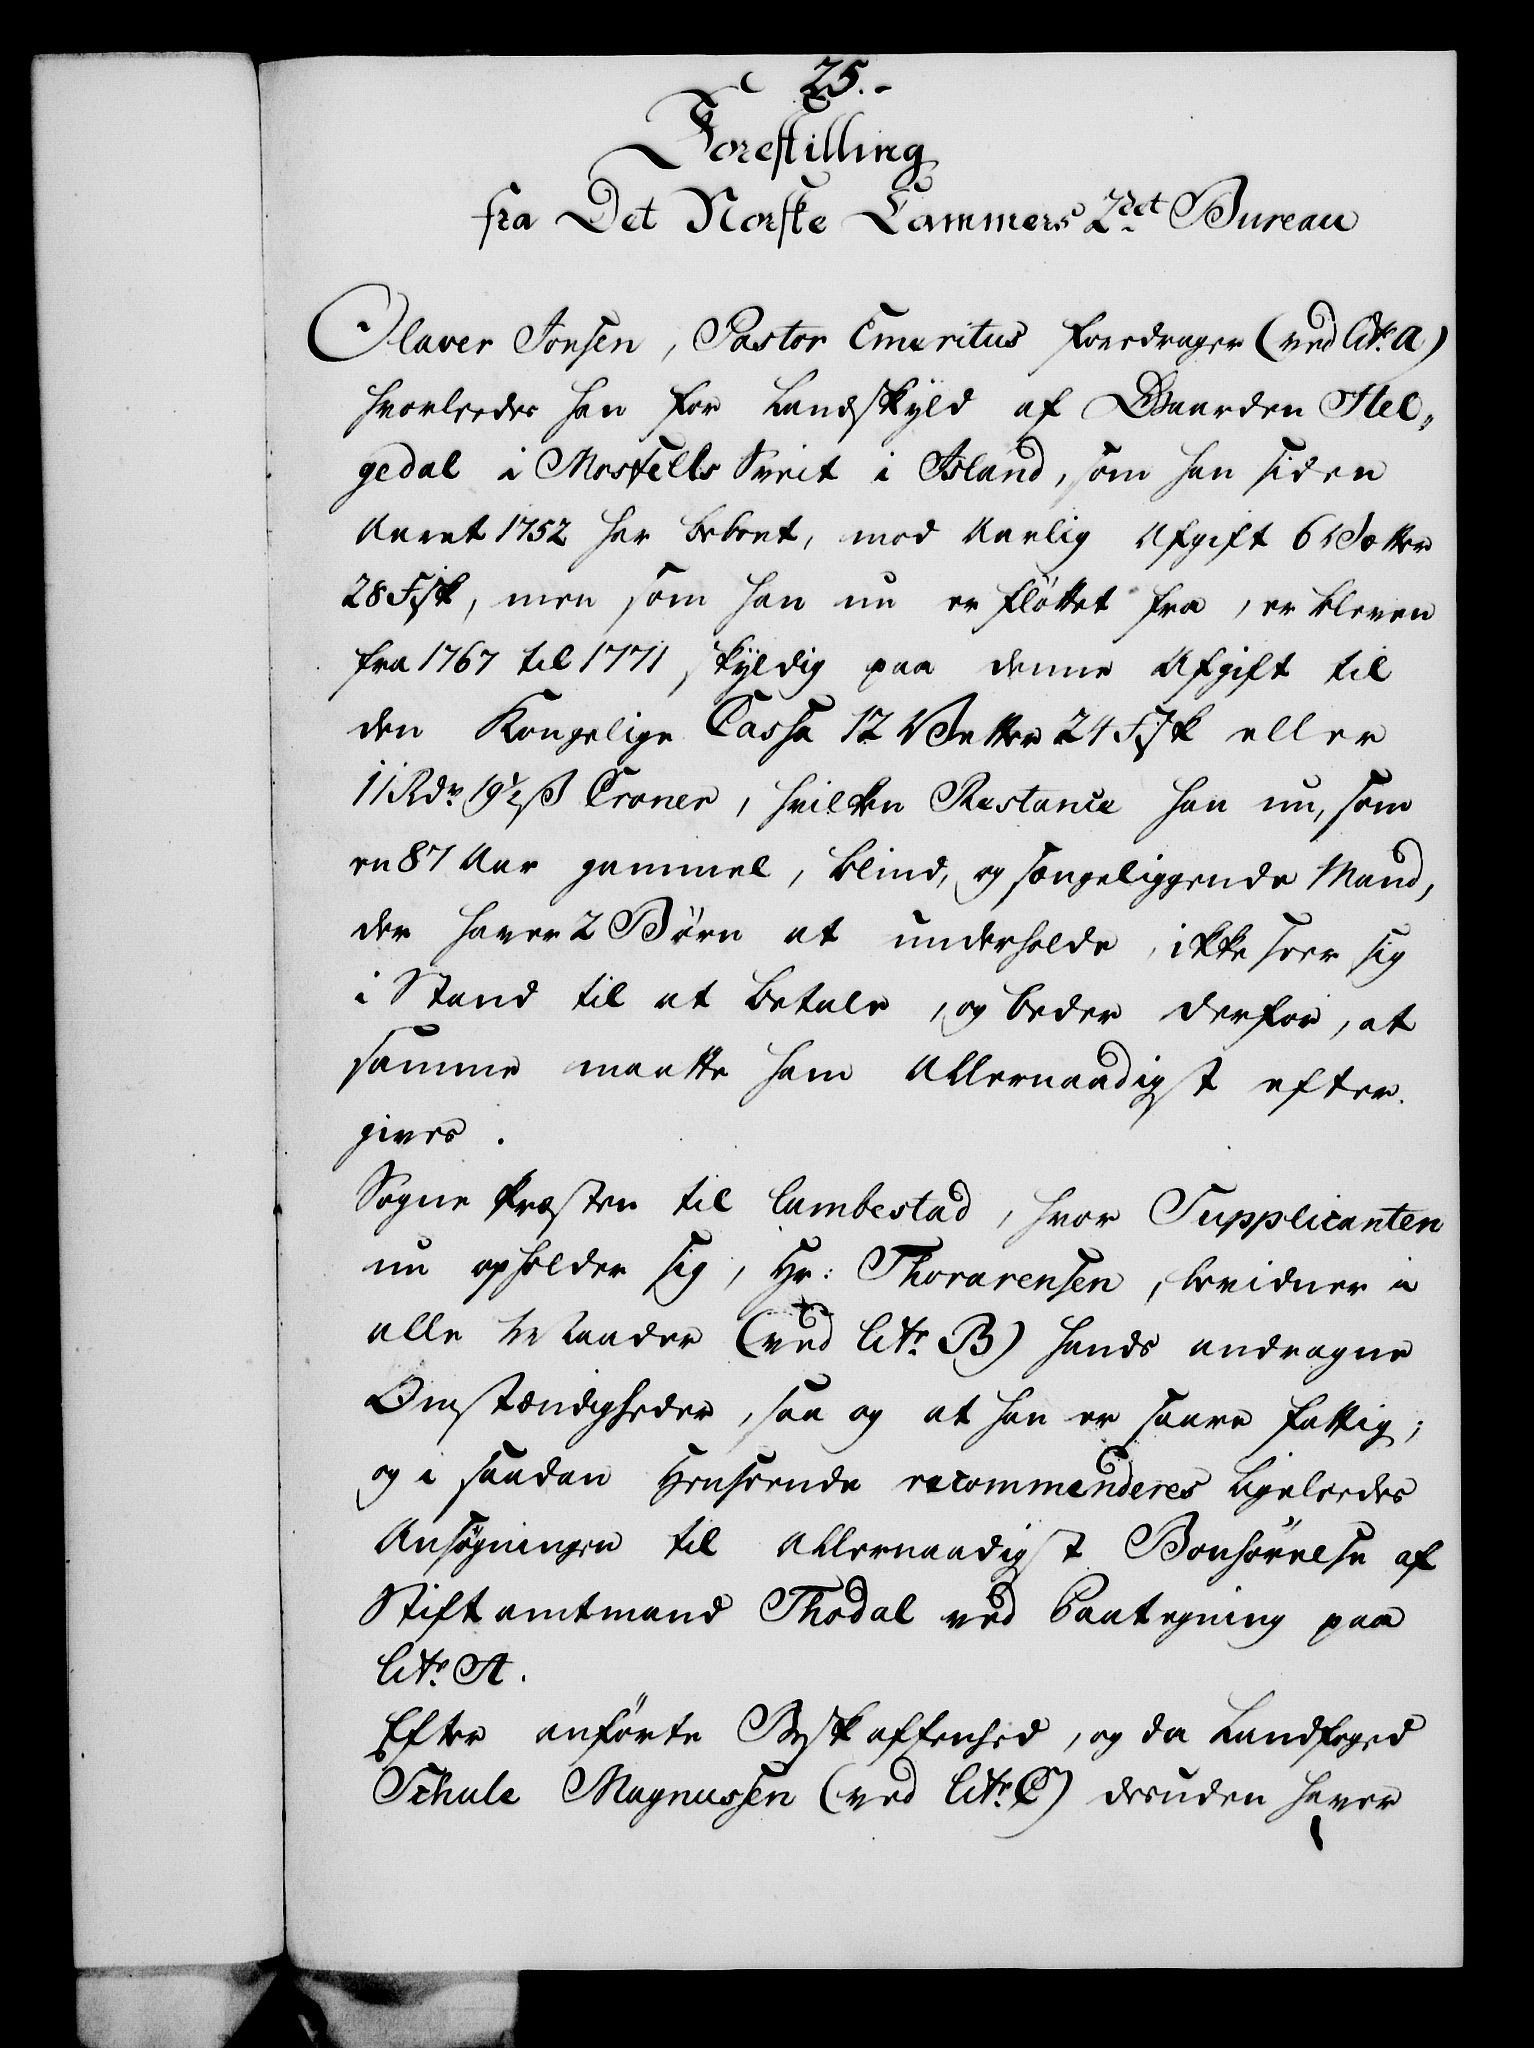 25.-
Forestilling
fra Det Norske Cammers 2det Bureau
Olaver Jonsen, Pastor Emeritus foredrager (ved litr. A)
hvorledes han for Landskyld af Gaarden Hel-
gedal i Mosfells Sveit i Island, som han siden
Aaret 1752 har beboet, mod Aarlig Afgift 6 Vetter
28 Fisk, men som han nu er fløttet fra, er bleven
fra 1767 til 1771 skyldig paa denne Afgift til
den Kongelige Cassa 12 Vetter 24 Fisk eller
11 Rdr. 19½ ß Croner, hvilken Restance han nu, som
en 87 Aar gammel, blind, og sengeliggende Mand,
der haver 2 Børn at underholde, ikke seer sig
i Stand til at betale, og beder derfor, at
samme maatte ham Allernaadigst efter-
gives.
Sogne Præsten til Lambestad, hvor Supplicanten
nu opholder sig, Hr: Thorarensen, bevidner i
alle Maader (ved litr. B) hands andragne
Omstændigheder, saa og at han er saare fattig;
og i saadan Henseende recommenderes ligeledes
Ansøgningen til Allernaadigst Bønhørelse af
Stiftamtmand Thodal ved Paategning paa
litr. A.
Efter anførte Beskaffenhed, og da Landfoged
Schule Magnussen (ved litr. C) desuden haver